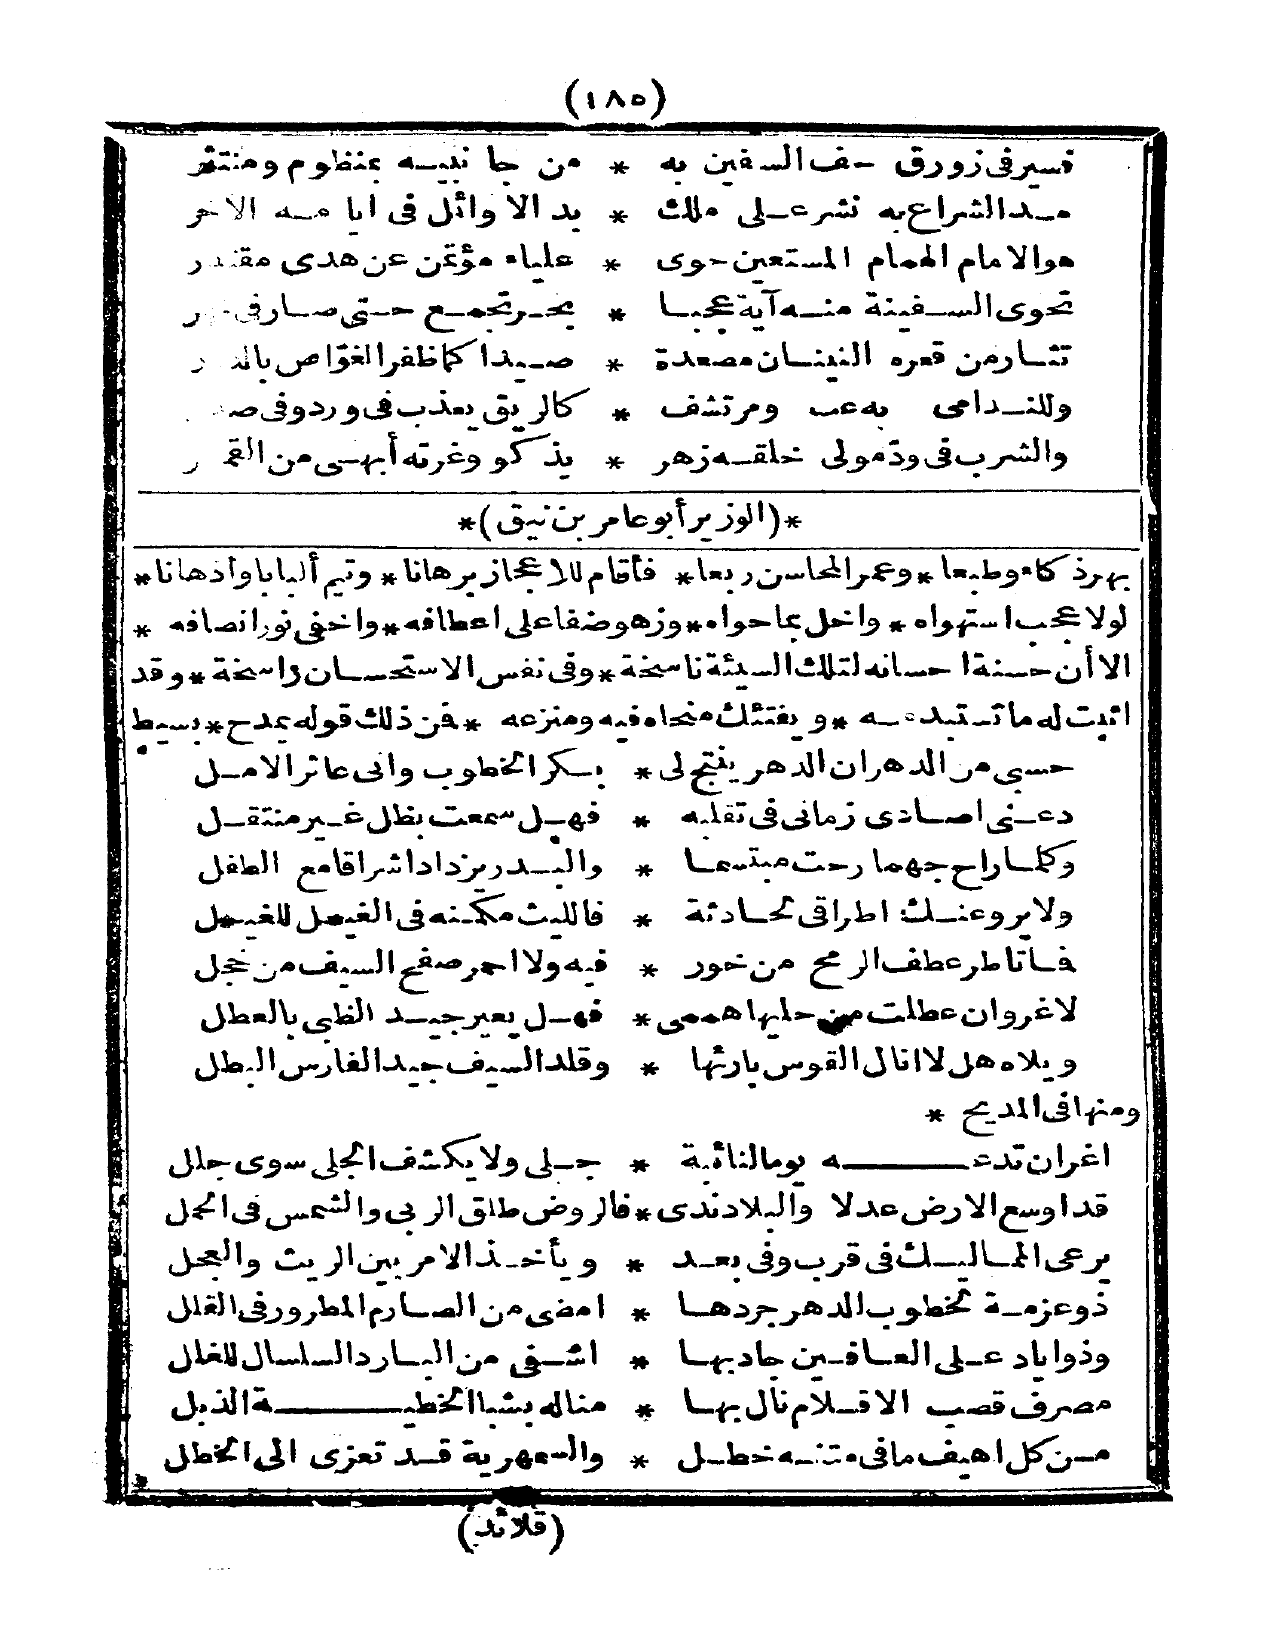 (١٨٥)
نسير فى زورق حف السفين به * من جانبيه بمنظوم ومنتثر
مد الشراع به نشر على ملك * بد الاوائل فى ايامه الاخر
هو الامام الهمام المستعين حوى * علياء مؤتمن عن هدى مقتدر
تحوى السفينة منه آية عجبا * بحر تجمع حتى صار فى
تثار من قعره النينان مصعدة * صيدا كما ظفر الغواص بالدرر
وللندامى به عب ومرتشف * كالريق يعذب فى ورد وفى
والشرب فى ود مولى خلقه زهر * يذكو وغرته أبهى من القمر
*(الوزير أبو عامر بن نيق)*
بهر ذكاء وطبعا * وعمر المحاسن ربعا * فأقام للاعجاز برهانا * وتيم ألبابا وأذهانا *
لولا عجب استهواه * واخل بما حواه * وزهو ضفا على اعطافه * واخفى نور انصافه *
الا أن حسنة احسانه لتلك السيئة ناسخة * وفى نفس الاستحسان راسخة * وقد
اثبت له ما تستبدعه * ويفتنك منحاه فيه ومنزعه * فن ذلك قوله يمدح * بسيط
حسبى من الدهر ان الدهر ينتج لى * بكر الخطوب وانى عاثر الامل
دعنى اصادى زمانى فى تقلبه * فهل سمعت بظل غير منتقل
وكلما راح جهما رحت مبتسما * والبدر يزداد اشراقا مع الطفل
ولا يروعنك اطراقى لحادثة * فالليث مكمنه فى الغيل للغيل
فما تأطر عطف الرمح من خور * فيه ولا احمر صفح السيف من خجل
لا غرو ان عطلت من حليها هممى * فهل يعير جيد الظبى بالعطل
ويلاه هل لا انال القوس بارئها * وقلد السيف جيد الفارس البطل
ومنها فى المديح *
اغر ان تدعه يوما لنائبة * جلى ولا يكشف الجلى سوى جلل
قد اوسع الارض عدلا والبلاد ندى * فالروض طلق الربى والشمس فى الحمل
يرعى الممالك فى قرب وفى بعد * ويأخذ الامر بين الريث والعجل
ذو عزمة لخطوب الدهر جردها * امضى من الصارم المطرور فى القلل
وذو اياد على العافين جاد بها * اشفى من البارد السلسال للغلل
مصرف قصب الاقلام نال بها * مناله بشبا الخطية الذبل
من كل اهيف ما فى متنه خطل * والسمهرية قد تعزى الى الخطل
(قلائد)